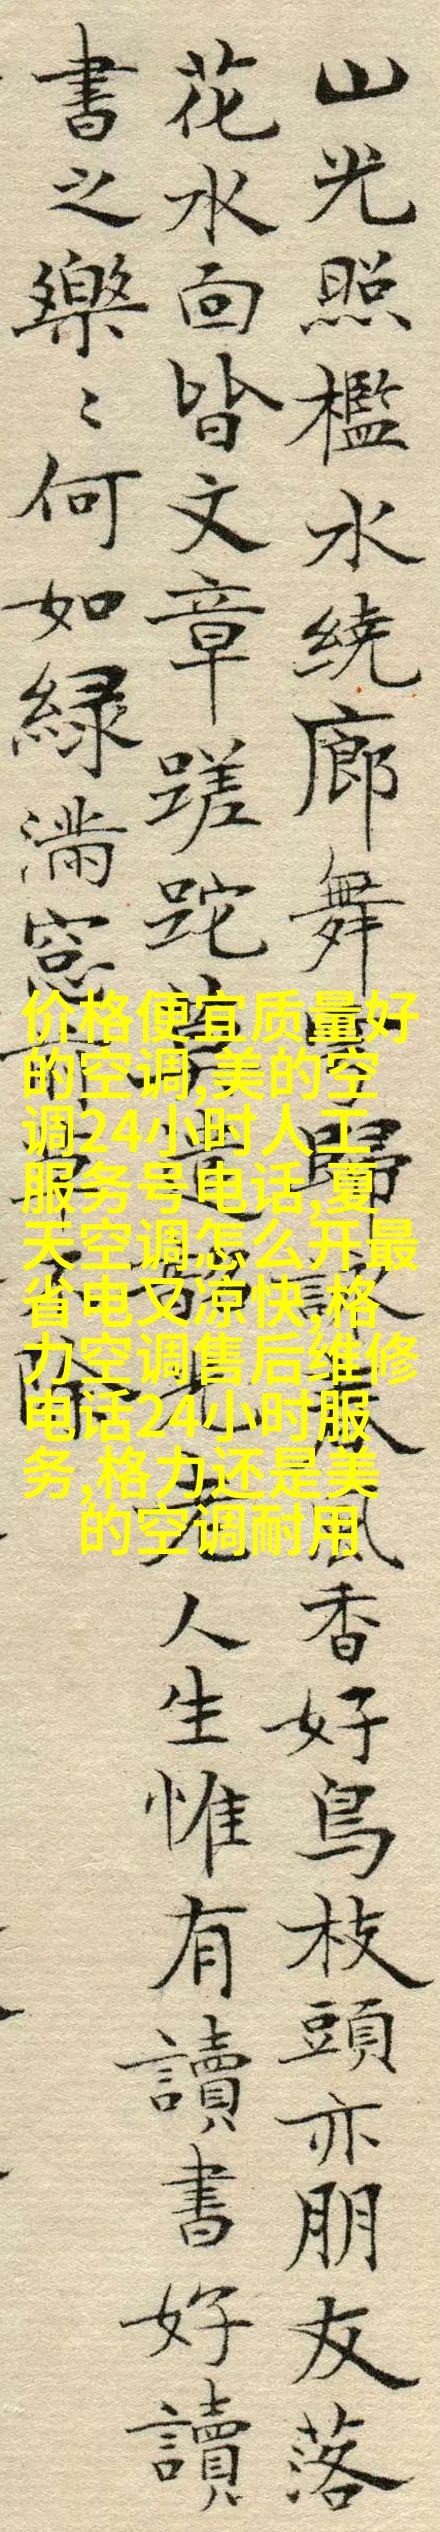 山光照檻水绕廊舞雩歸詠春風香好鳥枝頭亦朋友落
花水面皆文章蹉跎莫遣韶光老人生惟有讀書好讀
書之樂〻何如綠滿窓前草不除
价格便宜质量好
的空调,美的空
调24小时人工
服务号电话,夏
天空调怎么开最
省电又凉快,格
力空调售后维修
电话24小时服
务,格力还是美
的空调耐用